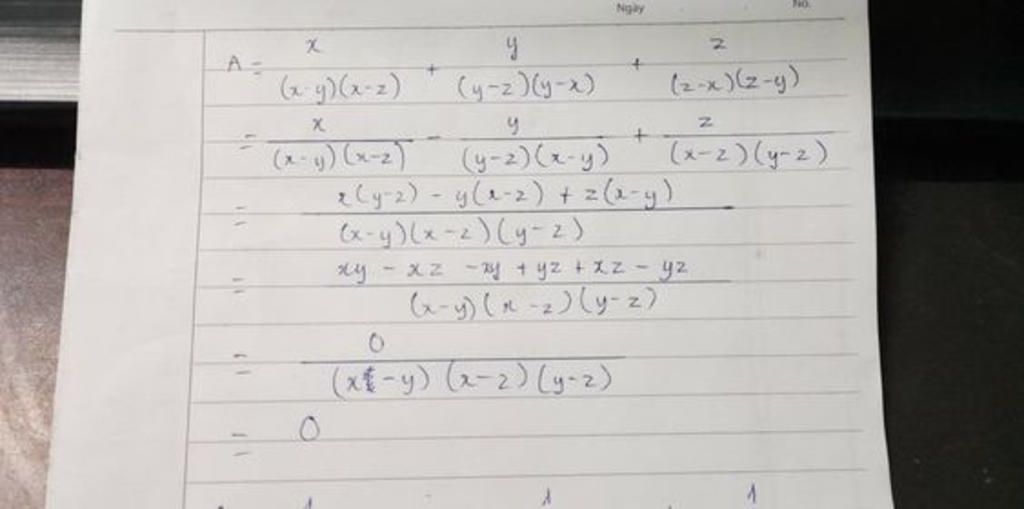 Ngày No.
A = x/((x-y)(x-z)) + y/((y-z)(y-x)) + z/((z-x)(z-y))
= x/((x-y)(x-z)) - y/((y-z)(x-y)) + z/((x-z)(y-z))
= (x(y-z) - y(x-z) + z(x-y))/((x-y)(x-z)(y-z))
= (xy - xz - xy + yz + xz - yz)/((x-y)(x-z)(y-z))
= 0/((x-y)(x-z)(y-z))
= 0
1 1 1